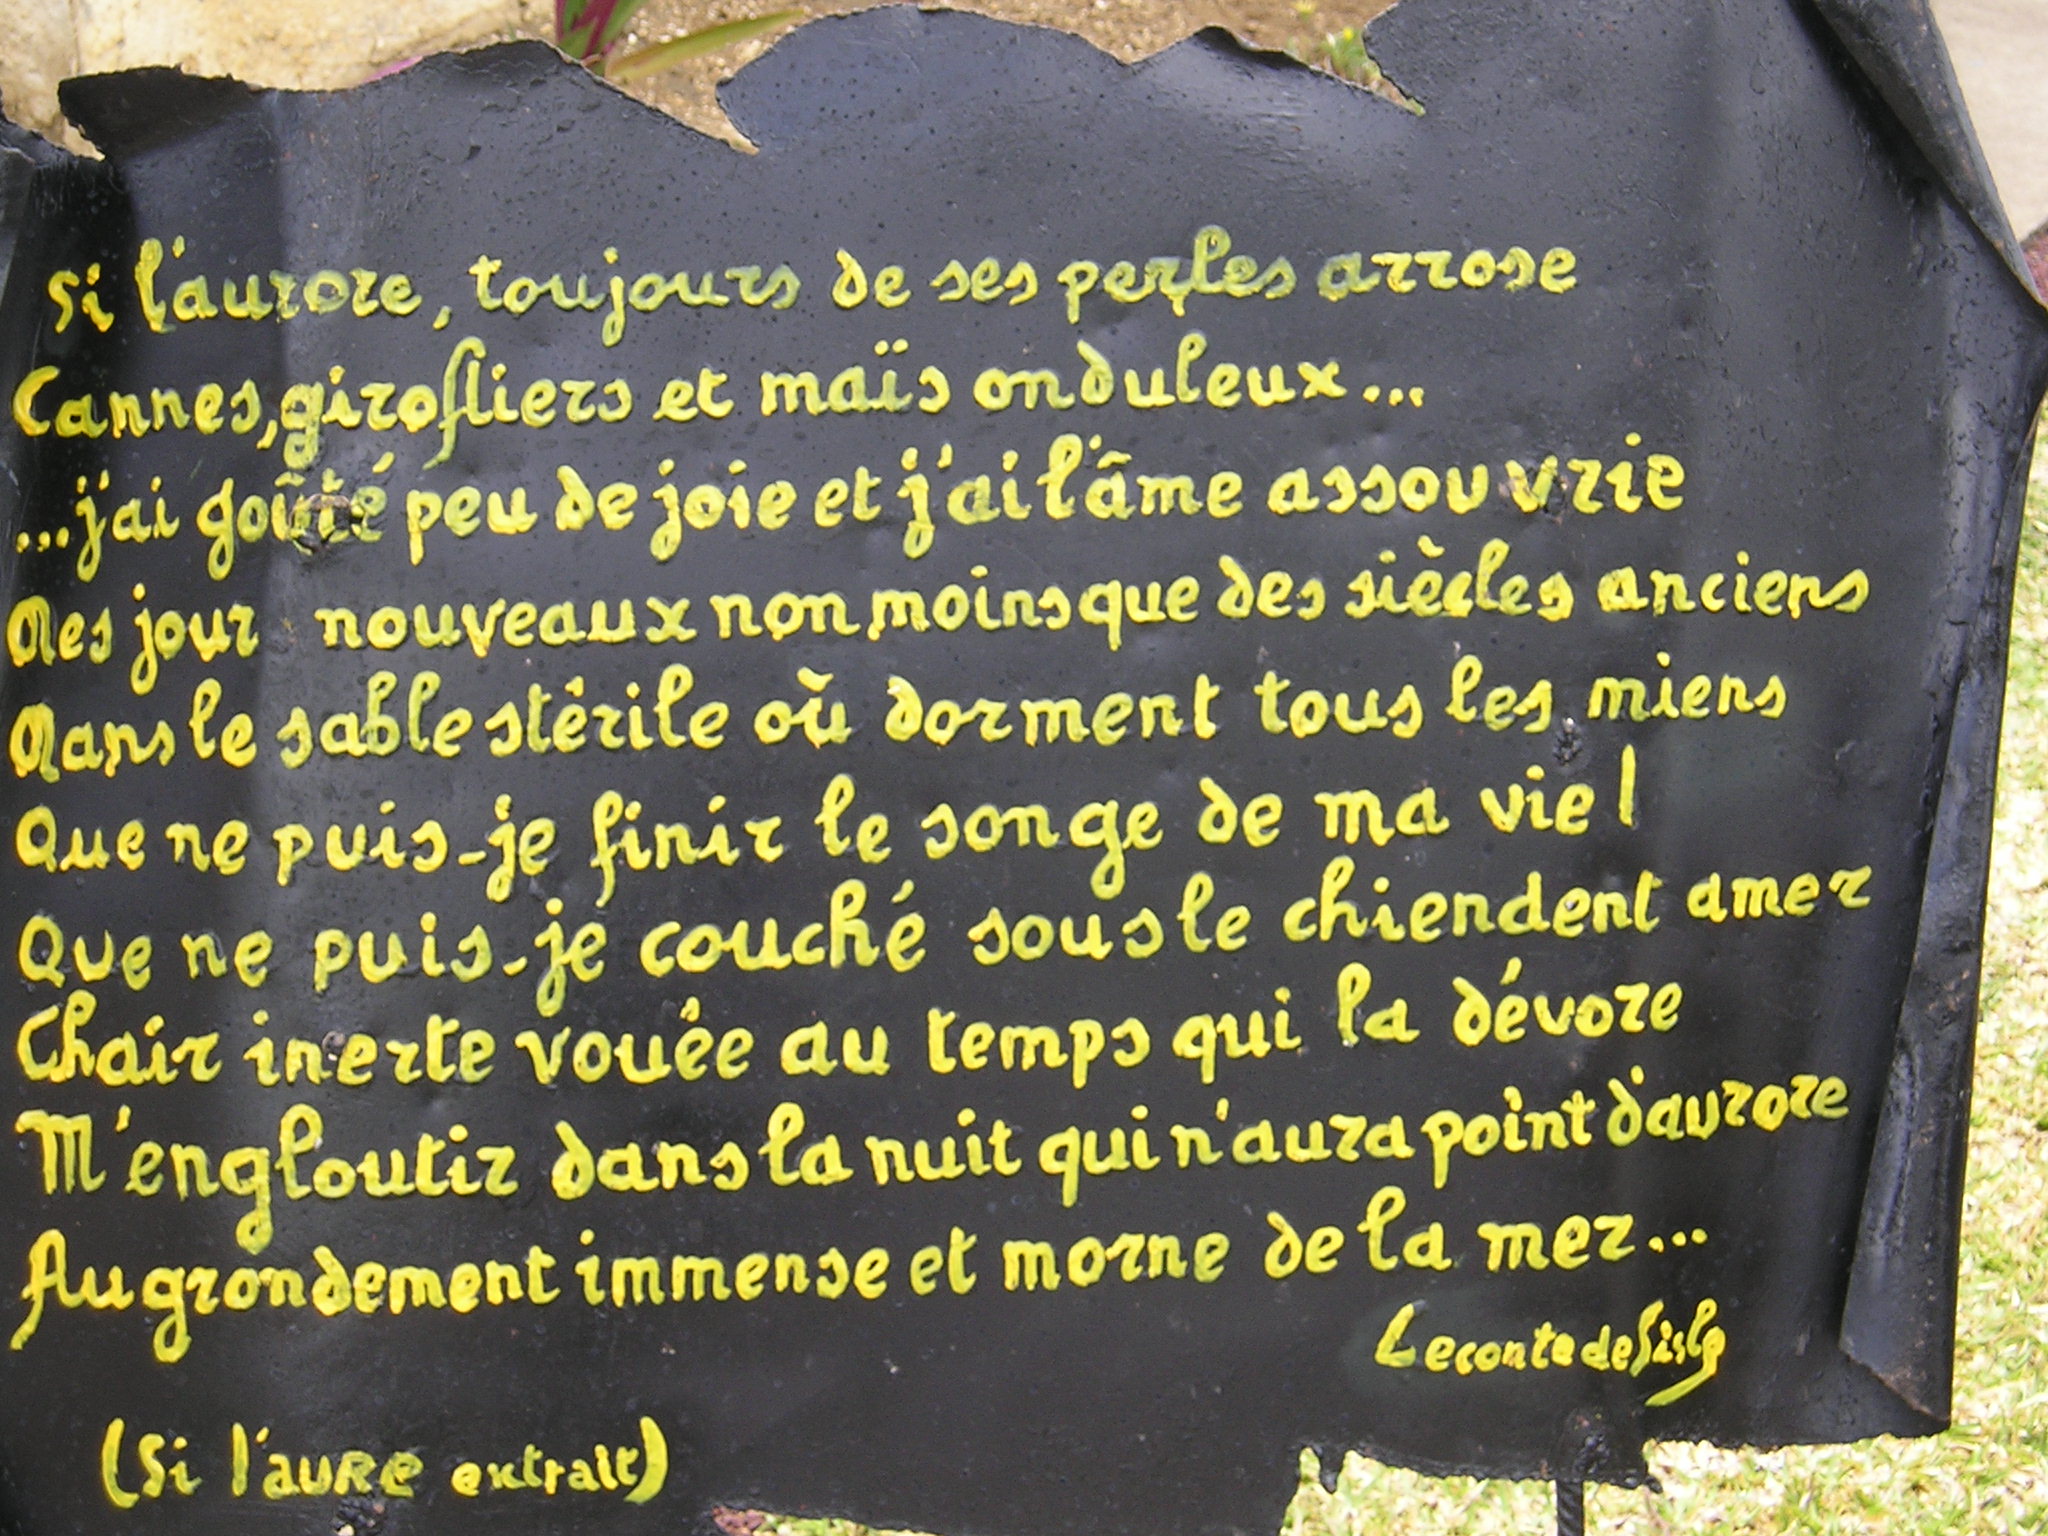 Si l'aurore, toujours de ses perles arrose
Cannes, girofliers et maïs onduleux...
...j'ai goûté peu de joie et j'ai l'âme assouvrie
Des jour nouveaux non moins que des siècles anciens
Dans le sable stérile où dorment tous les miens
Que ne puis-je finir le songe de ma vie !
Que ne puis-je couché sous le chiendent amer
Chair inerte vouée au temps qui la dévore
M'engloutir dans la nuit qui n'aura point d'aurore
Au grondement immense et morne de la mer...
Leconte de Lisle
(Si l'auRe extrait)